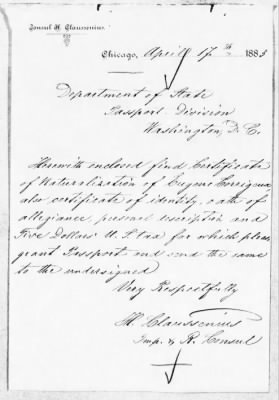 Consul H. Claussenius.
Chicago, April 17th 1883
Department of State
Passport Division
Washington, D. C.
Herewith enclosed find Certificate
of Naturalization of Eugene
also certificate of identity, oath of
allegiance, personal description and
Five Dollars U. S. tax for which please
grant Passport and send the same
to the undersigned
Very Respectfully
H. Claussenius
Imp. & R. Consul